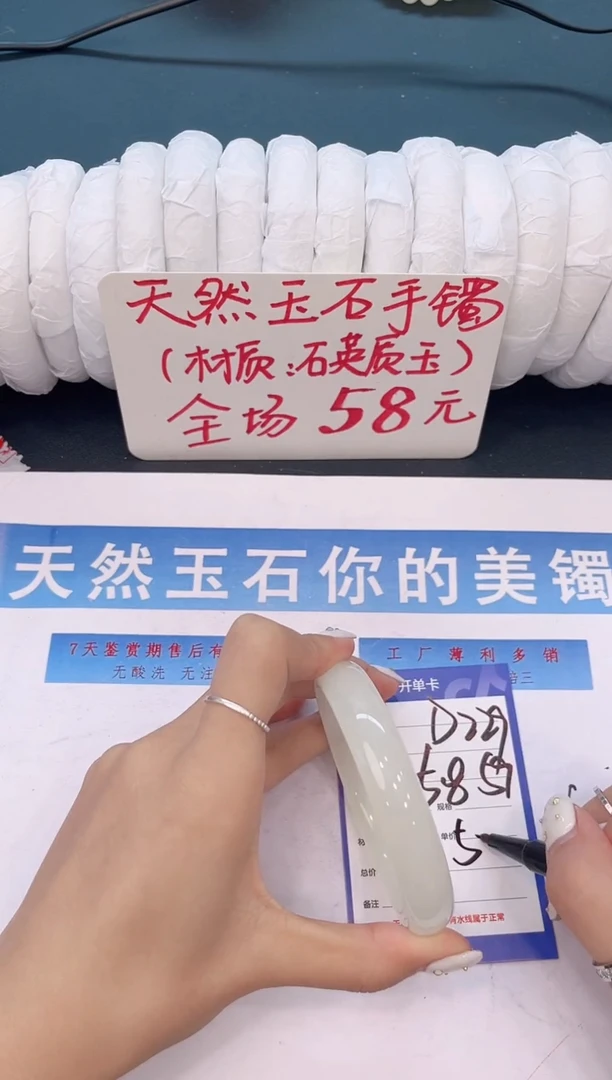 天然玉石手镯
（材质：石英质玉）
全场 58元
天然玉石你的美镯
7天鉴赏期售后有
工厂薄利多销
无酸洗 无注
开单卡
D229
规格
单价 5
总价
备注
水线属于正常